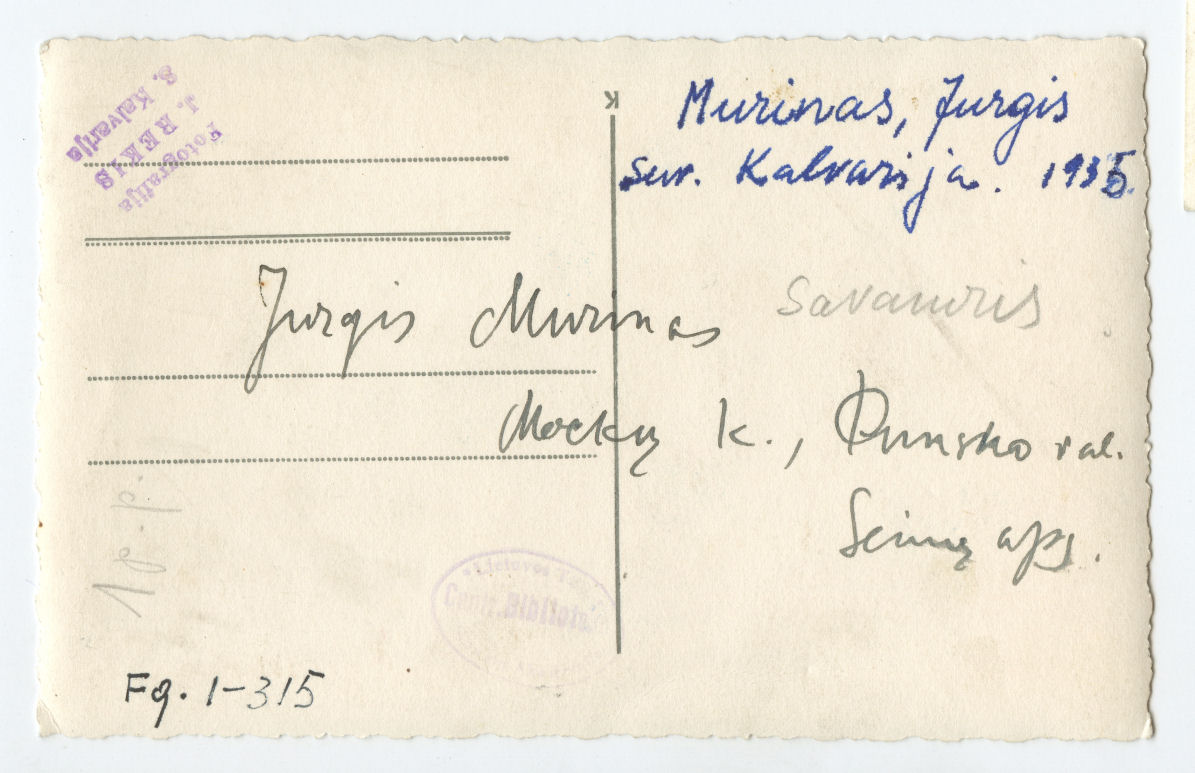 Fotografija
J. REKIS
S. Kalvarija
K
Murinas, Jurgis
suv. Kalvarija. 1935.
Jurgis Murinas
savanoris
Mockų k., Punsko val.
Seinų aps.
10 p.
Lietuvos
Centr. Bibliot
Fg. 1-315